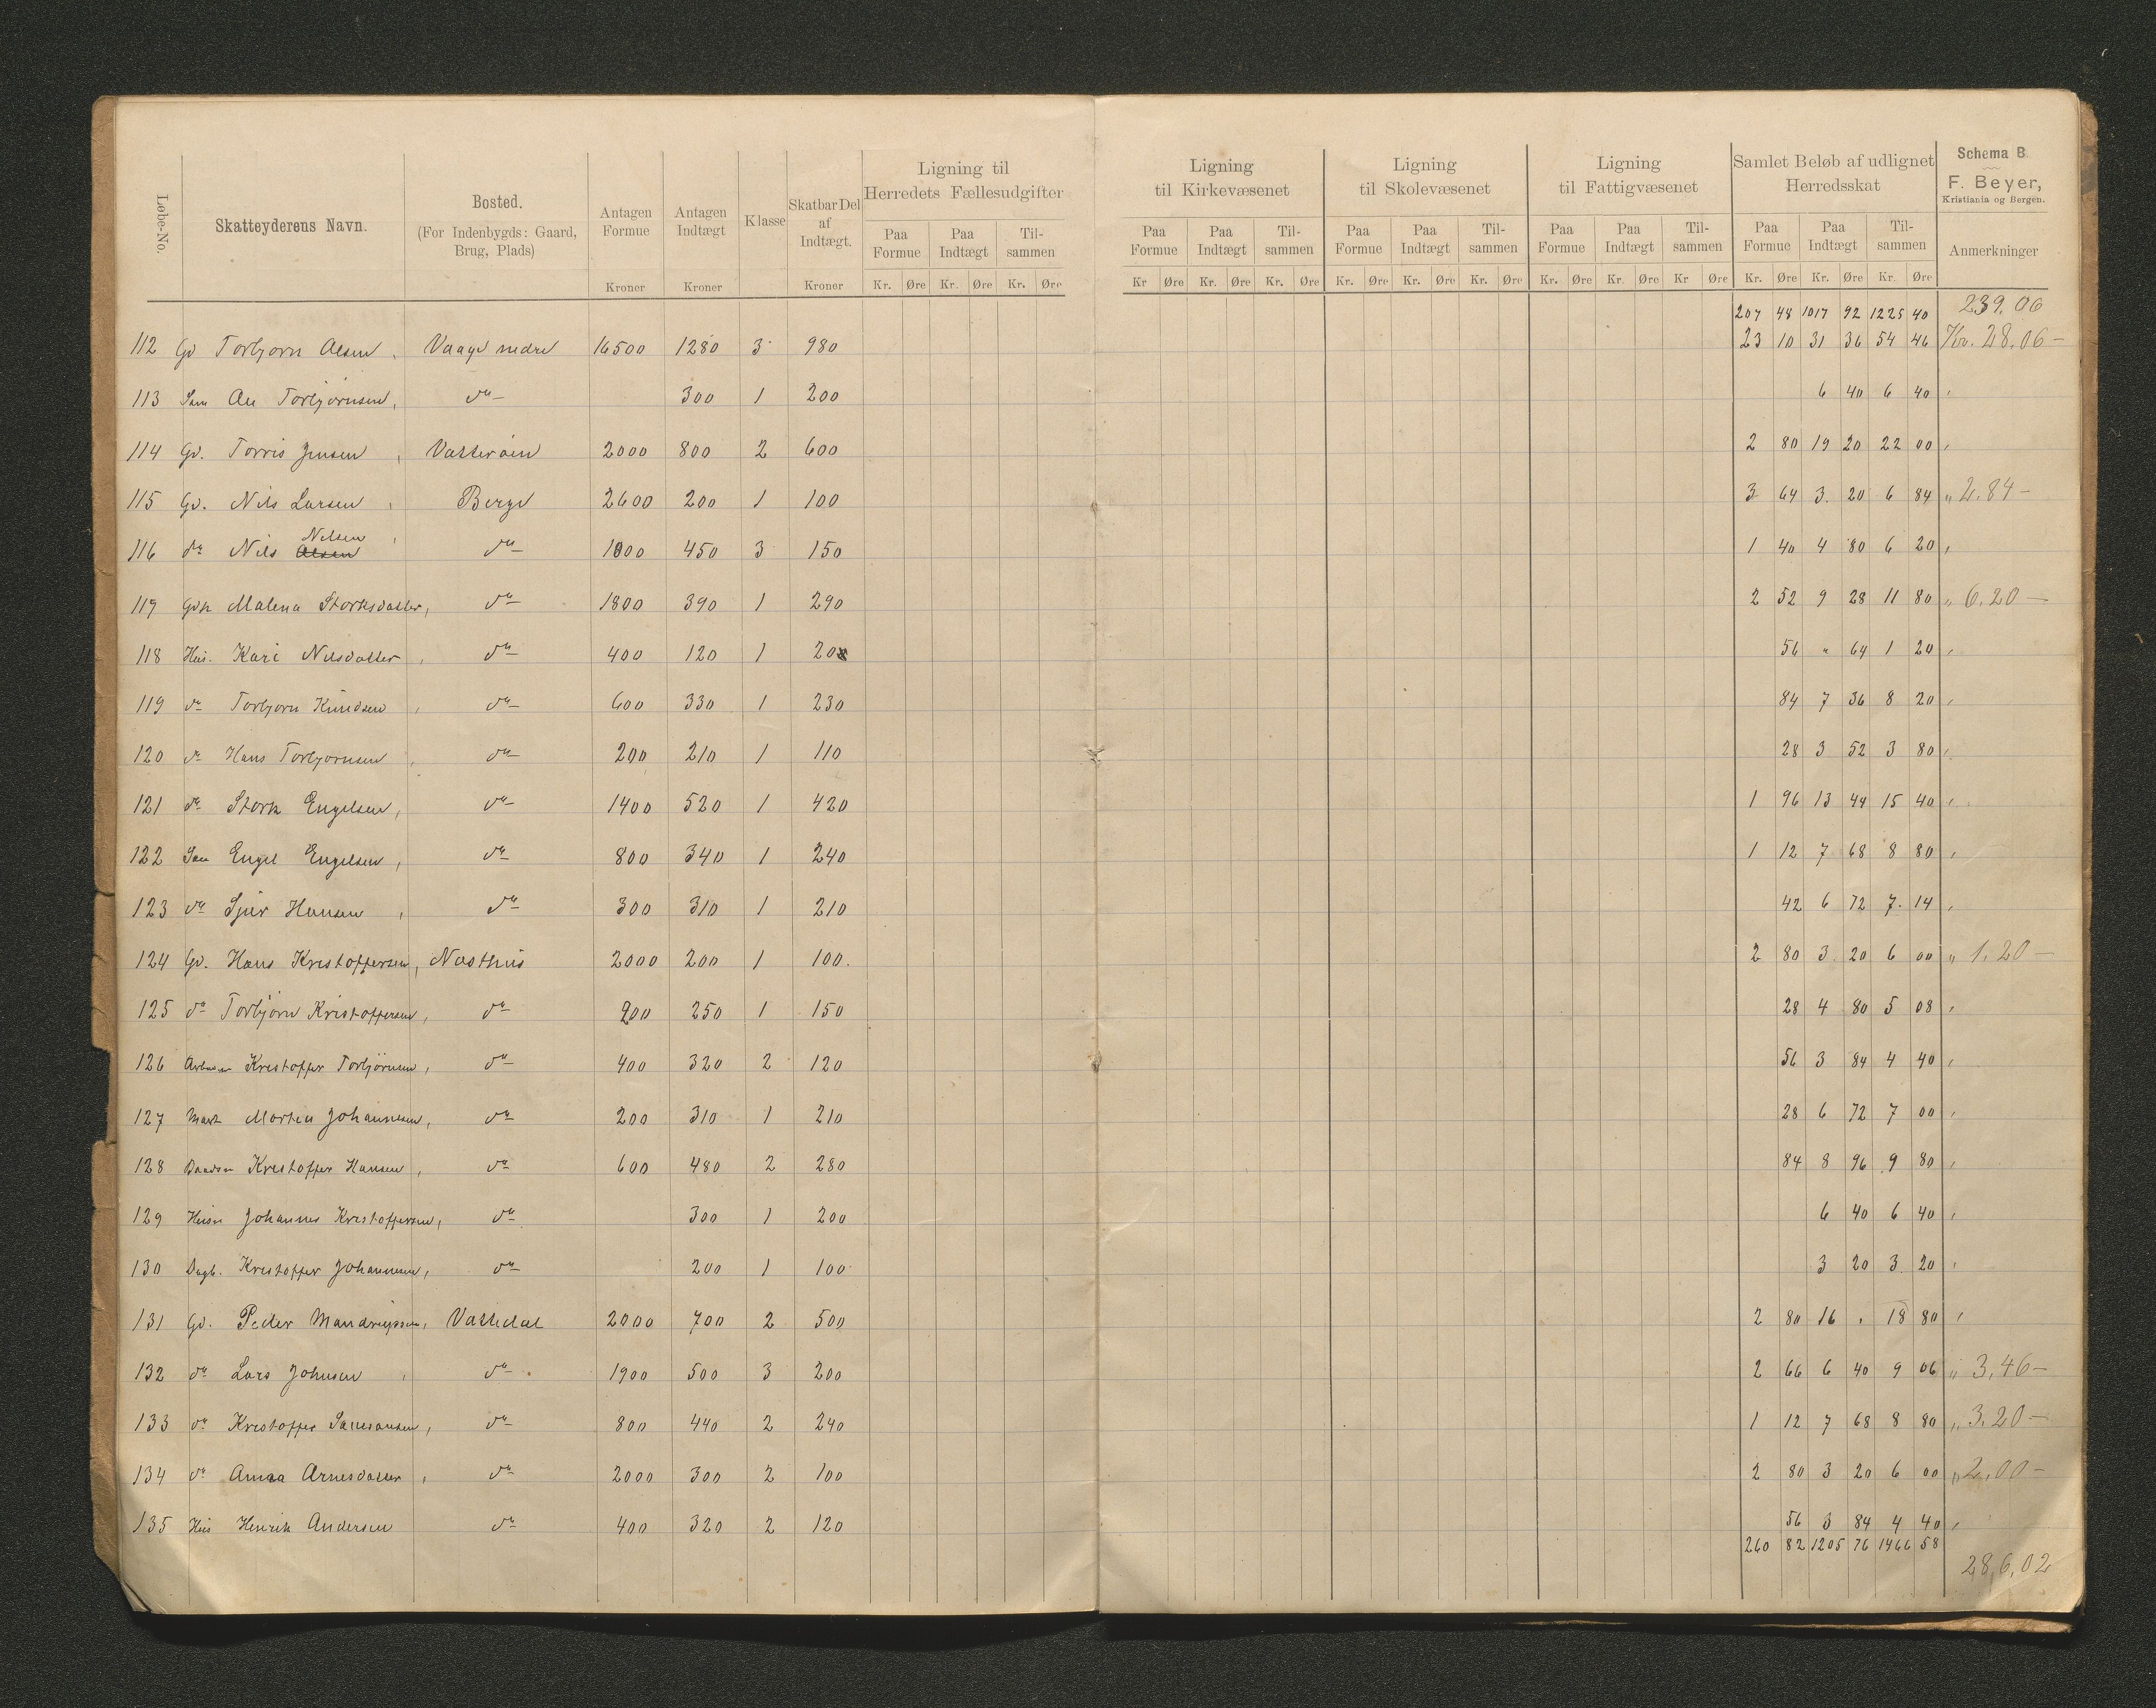 Løbe-No. Skatteyderens Navn. Bosted. (For Indenbygds: Gaard, Brug, Plads) Antagen Formue Kroner Antagen Indtægt Kroner Klasse Skatbar Del af Indtægt. Kroner
Ligning til Herredets Fællesudgifter Paa Formue Paa Indtægt Tilsammen Kr. Øre Kr. Øre Kr. Øre
Ligning til Kirkevæsenet Paa Formue Paa Indtægt Tilsammen Kr Øre Kr. Øre Kr. Øre
Ligning til Skolevæsenet Paa Formue Paa Indtægt Tilsammen Kr. Øre Kr. Øre Kr. Øre
Ligning til Fattigvæsenet Paa Formue Paa Indtægt Tilsammen Kr. Øre Kr. Øre Kr Øre
Samlet Beløb af udlignet Herredsskat Paa Formue Paa Indtægt Tilsammen Kr. Øre Kr. Øre Kr. Øre
Schema B
F. Beyer,
Kristiania og Bergen.
Anmerkninger
207 48 1017 92 1225 40 239,06
112 Gd Torbjørn Aesen, Vaage nedre 16500 1280 3 980 23 10 31 36 54 46 Kr. 28.06 —
113 Søn Torbjørnsen, do 300 1 200 6 40 6 40
114 Gd. Torris Jensen, 2000 800 2 600 2 80 19 20 22 00
115 Gd. Nils Larsen, Berge 2600 200 1 100 3 64 3. 20 6 84 " 2.84 —
116 do Nils Nilsen, do 1000 450 3 150 1 40 4 80 6 20
119 Malena Storksdatter, do 1800 390 1 290 2 52 9 28 11 80 " 6.20 —
118 Hus. Kari Nilsdatter, do 400 120 1 20 56 " 64 1 20
119 do Torbjørn Knudsen, do 600 330 1 230 84 7 36 8 20
120 do Hans Torbjørnsen, do 200 210 1 110 28 3 52 3 80
121 do Stork Engelsen, do 1400 520 1 420 1 96 13 44 15 40
122 Søn Engel Engelsen, do 800 340 1 240 1 12 7 68 8 80
123 do Sjur Hansen, do 300 310 1 210 42 6 72 7. 14
124 Gd. Hans Kristoffersen, Nøsthus 2000 200 1 100. 2 80 3 20 6 00 " 1.20 —
125 do Torbjørn Kristoffersen, do 200 250 1 150 28 4 80 5 08
126 Kristoffer Torbjørnsen, do 400 320 2 120 56 3 84 4 40
127 Morten Johannesen, do 200 310 1 210 28 6 72 7 00
128 Kristoffer Hansen, do 600 480 2 280 84 8 96 9 80
129 Johannes Kristoffersen, do 300 1 200 6 40 6 40
130 Dagb. Kristoffer Johannesen, do 200 1 100 3 20 3 20
131 Gd. Peder Vattedal 2000 700 2 500 2 80 16 . 18 80
132 do Lars Johnsen, do 1900 500 3 200 2 66 6 40 9 06 " 3,46 —
133 do Kristoffer do 800 440 2 240 1 12 7 68 8 80 " 3.20 —
134 do Anna Arnesdatter, do 2000 300 2 100 2 80 3 20 6 00 " 2.00 —
135 Hus Henrik Andersen do 400 320 2 120 56 3 84 4 40
260 82 1205 76 1466 58
28,6,02